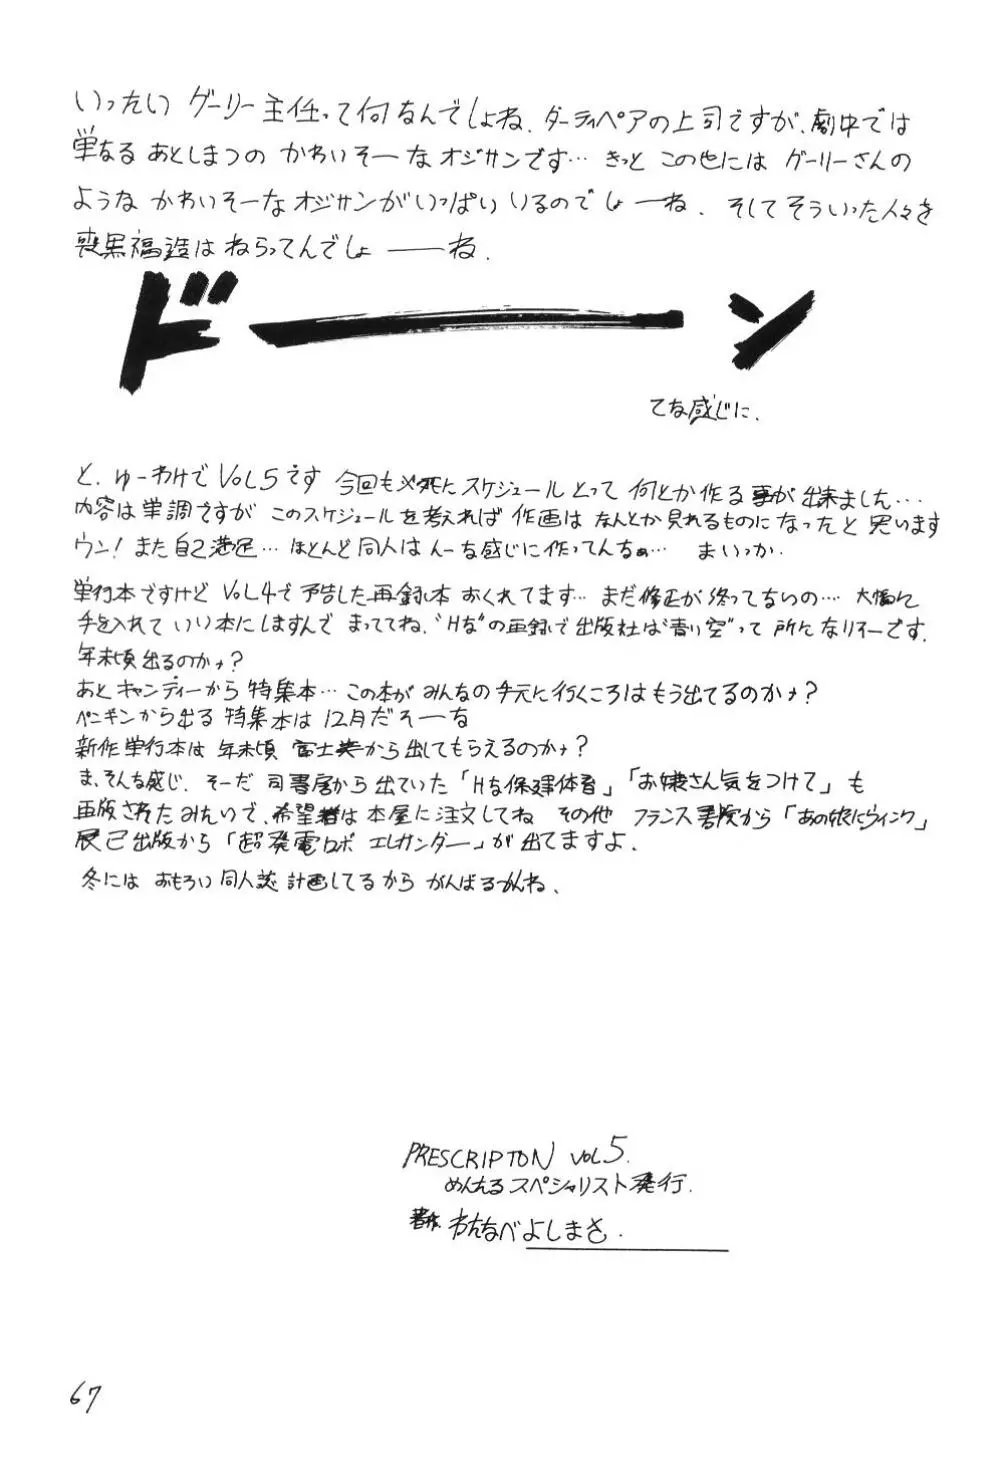 いったい グーリー主任って何なんでしょね、ダーティペアの上司ですが、劇中では
単なる あとしまつの かわいそーな オジサンです… きっと この世には グーリーさんの
ような かわいそーな オジサンが いっぱい いるのでしょーね、そして そういった人々を
喪黒福造は ねらってんでしょ――ね.
ドーン
てな感じに、
と、ゆーわけで VOL5です 今回も必死に スケジュール とって 何とか作る事が出来ました…
内容は単調ですが このスケジュールを考えれば 作画は なんとか見れるものに なったと 思います
ウン! また自己満足… ほとんど同人は んーな感じに作ってんなぁ… まいっか.
単行本ですけど VOL4で 予告した再録本 おくれてます… まだ修正が終ってないの… 大幅に
手を入れて いい本にしますんで まっててね、"Hな"の再録で出版社は"青い空"って 所になりそーです.
年末頃出るのかナ?
あと キャンディーから 特集本… この本が みんなの手元に行くころは もう出てるのかナ?
ペンギンから出る 特集本は 12月だそーな
新作単行本は 年末頃 富士美から出してもらえるのかナ?
ま、そんな感じ、そーだ 司書房から出ていた「Hな保健体育」「お嬢さん気をつけて」も
再版されたみたいで、希望者は 本屋に注文してね その他 フランス書院から「あの娘にウィンク」
辰己出版から「超発電ロボ エレサンダー」が出てますよ.
冬には おもろい 同人誌 計画してるから がんばるかんね、
PRESCRIPTON VOL5.
めんたるスペシャリスト発行.
著作. わたなべよしまさ.
67